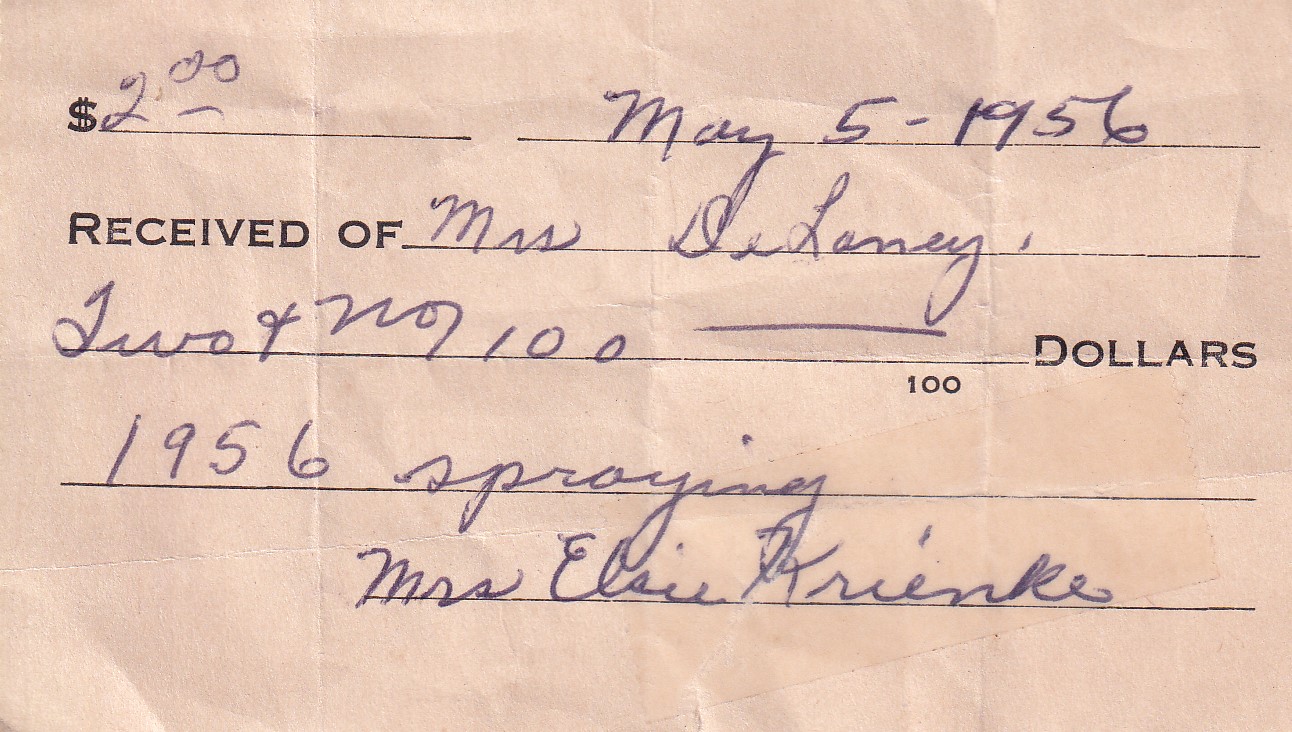 $2.00 May 5-1956
RECEIVED OF Mrs DeLaney.
Two & no/100 DOLLARS
100
1956 spraying
Mrs Elsie Krienke